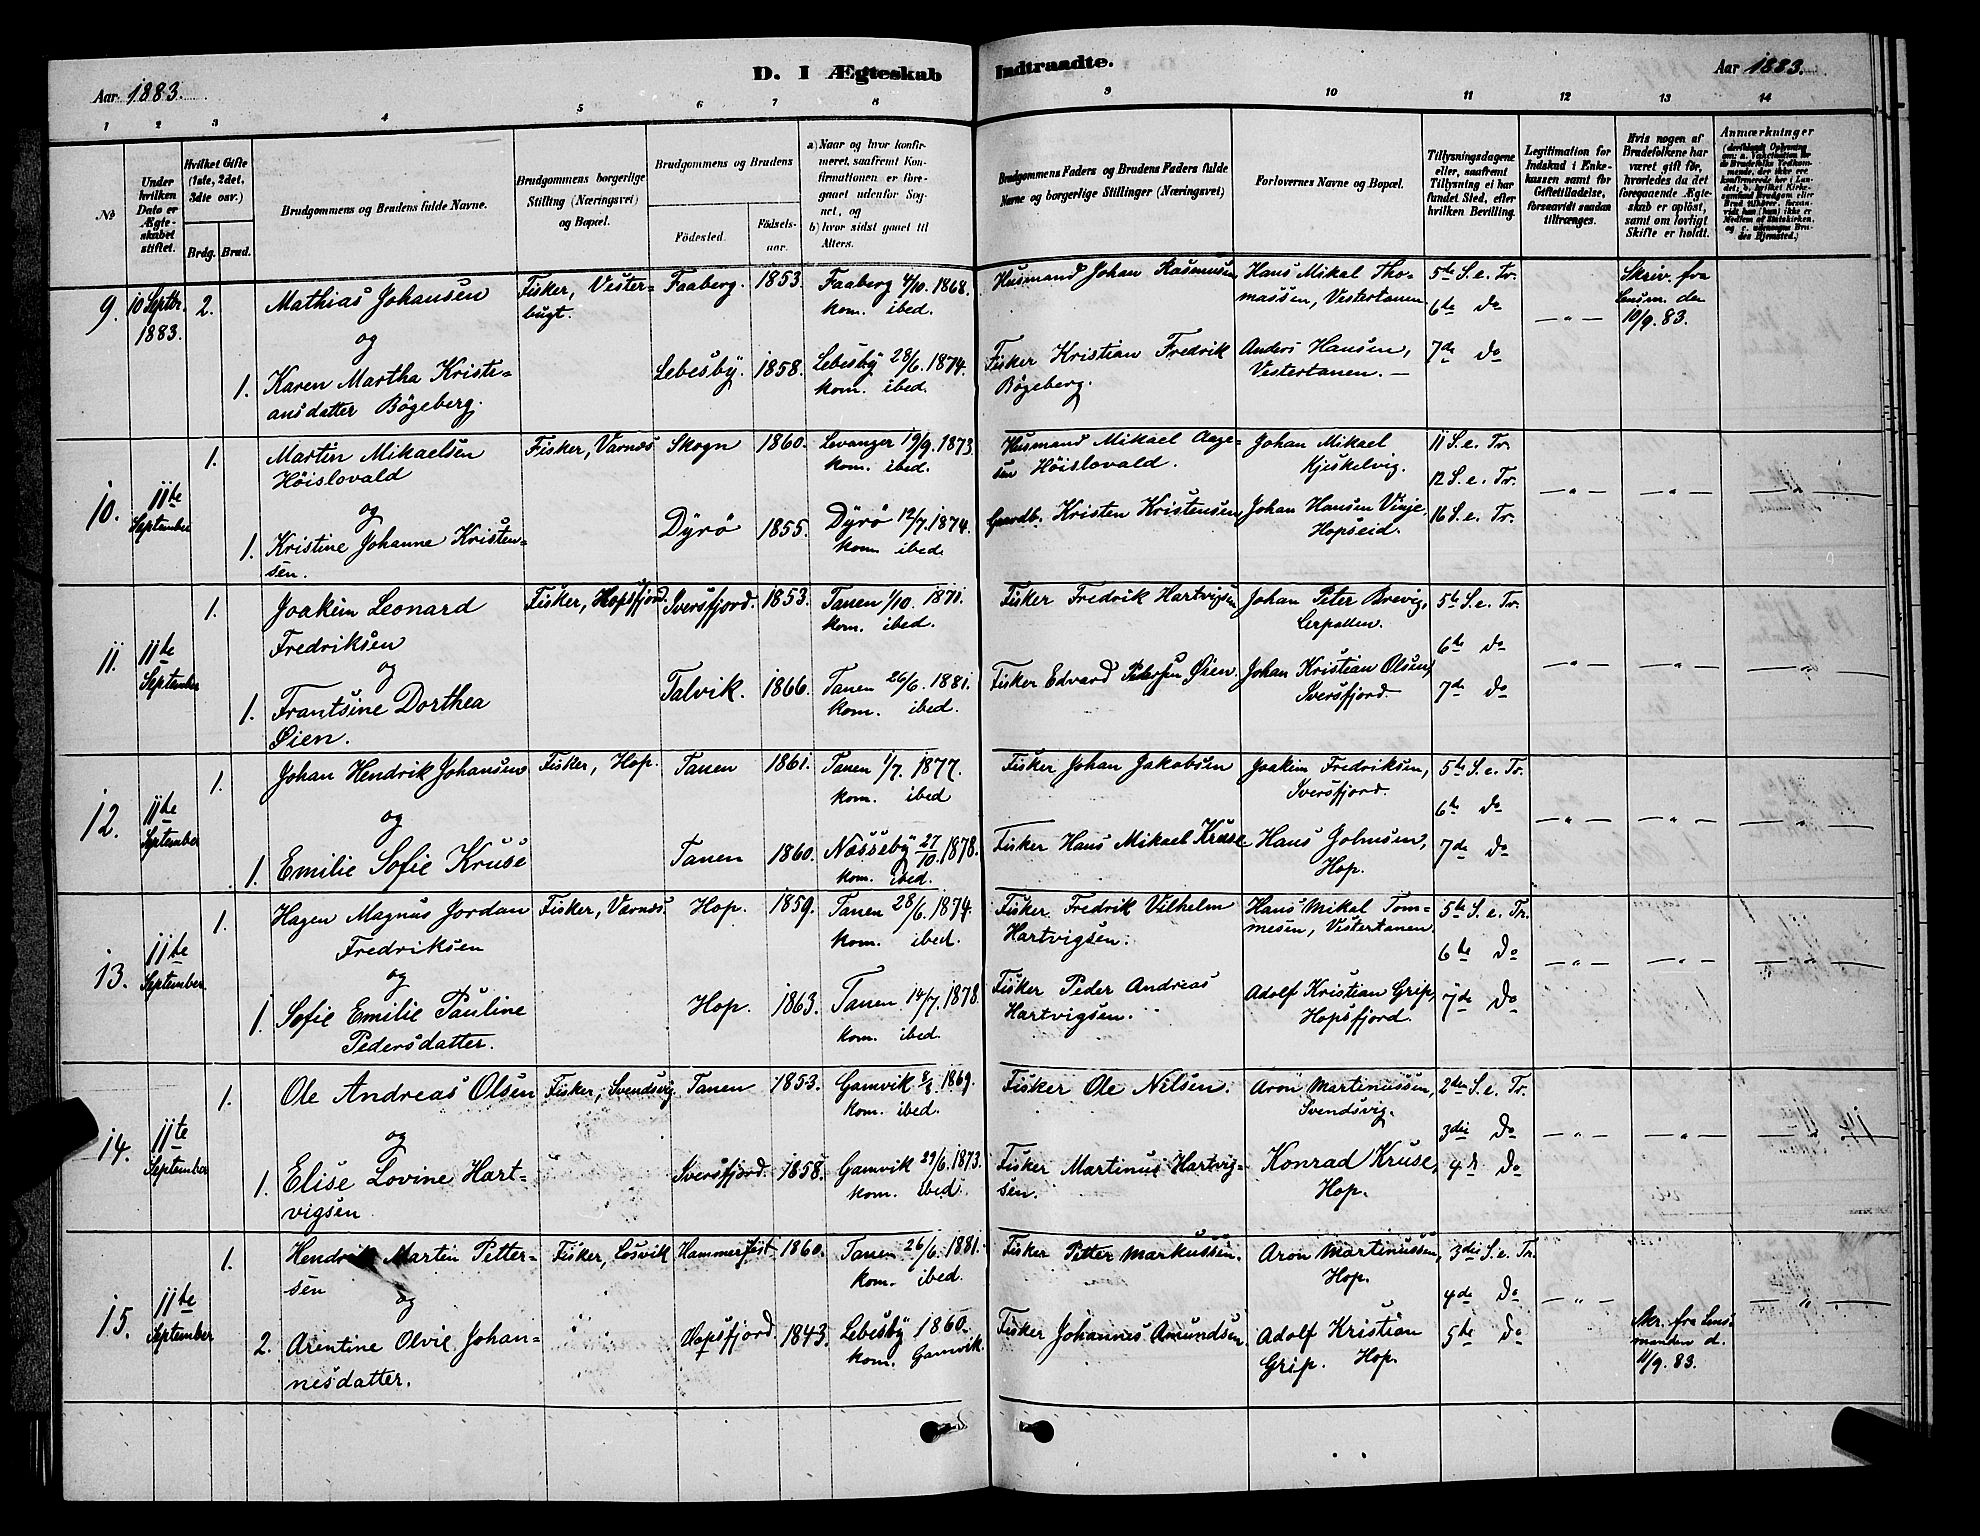 Aar 1883.
D. I Ægteskab Indtraadte.
Aar 1883.
1 2 3 4 5 6 7 8 9 10 11 12 13 14
No
Under hvilken Dato er Ægteskabet stiftet.
Hvilket Gifte (1ste, 2det, 3die osv.)
Brdg. Brud.
Brudgommens og Brudens fulde Navne.
Brudgommens borgerlige Stilling (Næringsvei) og Bopæl.
Brudgommens og Brudens
Fødested.
Fødselsaar.
a) Naar og hvor konfirmeret, saafremt Konfirmationen er foregaaet udenfor Sognet, og
b) hvor sidst gaaet til Alters.
Brudgommens Faders og Brudens Faders fulde Navne og borgerlige Stillinger (Næringsvei)
Forlovernes Navne og Bopæl.
Tillysningsdagene eller, saafremt Tillysning ei har fundet Sted, efter hvilken Bevilling.
Legitimation for Indskud i Enkekassen samt for Giftetilladelse, forsaavidt saadan tiltrænges.
Hvis nogen af Brudefolkene har været gift før, hvorledes da det foregaaende Ægteskab er opløst, samt om lovligt Skifte er holdt.
Anmærkninger
9. 10 Septbr. 1883. 2.
Mathias Johansen
og
1. Karen Martha Kristiansdatter Bögeberg.
Fisker, Vesterbugt.
Faaberg. 1853. Faaberg 4/10. 1868. kom. ibed.
Lebesby. 1858. Lebesby 28/6. 1874. kom. ibed.
Husmand Johan Rasmusen
Fisker Kristian Fredrik Bögeberg.
Hans Mikal Thomassen, Vestertanen
Anders Hansen, Vestertanen. —
5te S. e. Tr.
6te do
7de do
— " —
Skriv. fra Lensm. den 10/9. 83.
10. 11te September 1.
Martin Mikaelsen Höislovald
og
1. Kristine Johanne Kristensen.
Fisker, Værnæs
Skogn 1860. Levanger 19/9. 1873. kom. ibed.
Dyrö 1855. Dyrö 12/7. 1874. kom. ibed.
Husmand Mikael Aagesen Höislovald.
Gaardb. Kristen Kristensen
Johan Mikael Kjeskelvig.
Johan Hansen Vinje, Hopseid.
11 S. e. Tr.
12 S. e. Tr.
16 S. e. Tr.
— " — — " — — " —
11. 11te September 1.
Joakim Leonard Fredriksen
og
1. Frantsine Dorthea Øien.
Fisker, Hopsfjord.
Iversfjord. 1853. Tanen 1/10. 1871. kom. ibed.
Talvik. 1866. Tanen 26/6. 1881. kom. ibed.
Fisker Fredrik Hartvigsen
Fisker Edvard Petersen Øien.
Johan Peter Brevig, Lerpollen.
Johan Kristian Olsen, Iversfjord.
5te S. e. Tr.
6te do
7de do
— " — — " — — " —
12. 11te September 1.
Johan Hendrik Johansen
og
1. Emilie Sofie Kruse
Fisker, Hop.
Tanen 1861. Tanen 1/7. 1877. kom. ibed
Tanen 1860. Næsseby 27/10. 1878. kom. ibed.
Fisker Johan Jakobsen
Fisker Hans Mikael Kruse
Joakim Fredriksen, Iversfjord.
Hans Johnsen, Hop.
5te S. e. Tr.
6te do
7de do
— " — — " — — " —
13. 11te September 1.
Hagen Magnus Jordan Fredriksen
og
1. Sofie Emilie Pauline Pedersdatter.
Fisker, Værnæs.
Hop. 1859. Tanen 28/6. 1874. kom. ibed.
Hop. 1863. Tanen 14/7. 1878. kom. ibed.
Fisker Fredrik Vilhelm Hartvigsen.
Fisker Peder Andreas Hartvigsen.
Hans Mikal Tommesen, Vestertanen.
Adolf Kristian Grip, Hopsfjord.
5te S. e. Tr.
6te do
7de do
— " — — " — — " —
14. 11te September 1.
Ole Andreas Olsen
og
1. Elise Lovine Hartvigsen
Fisker, Svendsvig.
Tanen 1853. Gamvik 8/8. 1869. kom. ibed.
Iversfjord. 1858. Gamvik 29/6. 1873. kom. ibed.
Fisker Ole Nilsen.
Fisker Martinus Hartvigsen.
Aron Martinussen, Svendsvig.
Konrad Kruse, Hop.
2den S. e. Tr.
3die do
4de do
— " — — " — — " —
15. 11te September 1.
Hendrik Martin Pettersen
og
2. Arentine Olvie Johannesdatter.
Fisker, Losvik
Hammerfest. 1860. Tanen 26/6. 1881. kom. ibed.
Hopsfjord. 1843. Lebesby 1860. kom. Gamvik.
Fisker Petter Markussen.
Fisker Johannes Amundsen
Aron Martinussen, Hop.
Adolf Kristian Grip. Hop.
3die S. e. Tr.
4de do
5te do
— " —
Skr. fra Lensmanden d. 11/9. 83.
— " —